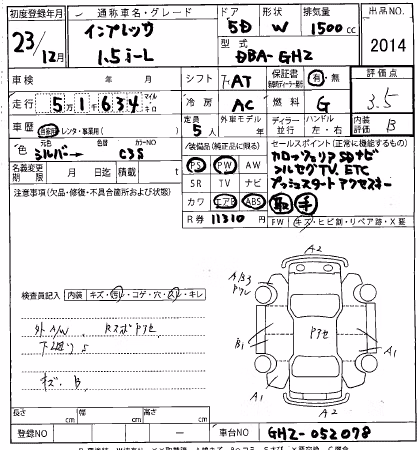 初度登録年月 通称車名・グレード ドア 形状 排気量 出品NO.
23/12月 インプレッサ 1.5i-L 5D W 1500cc 2014
型式 DBA-GH2
車検 年 月 シフト 7AT 保証書 有・無 評価点
走行 51634 マイル キロ 冷房 AC 燃料 G 3.5
車歴 自家用 レンタ・事業用( ) 定員 5人 外車モデル 年 ディーラー 並行 ハンドル 左・右 内装評価 B
色 元色 シルバー→ 色替 カラーNO C3S
名義変更期限 月 日迄 積載 t
注意事項(欠品・修復・不具合箇所および状態)
装備品(純正品に限る)
PS PW AW
SR TV ナビ
カワ エアB ABS
R券 11310 円
セールスポイント(正常に機能するもの)
カロッツェリア SDナビ
フルセグTV ETC
プッシュスタート アクセスキー
取 手
FW キズ・ヒビ割・リペア跡・X要
検査員記入 内装 キズ・汚レ・コゲ・穴・スレ・キレ
外A/W
下廻りS
キズ. B
A2
B1
A1
A1
A2
長さ cm 幅 cm 高さ cm
登録NO — — 車台NO GH2-052078